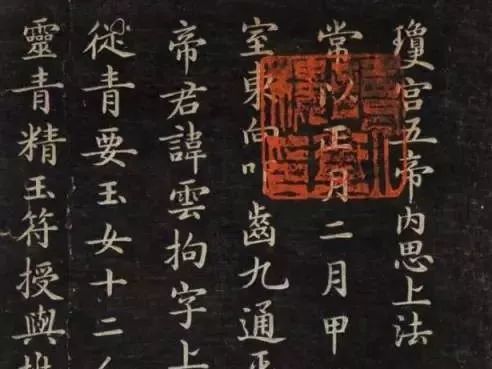 瓊宫五帝内思上法
常以正月二月甲
室東向叩齒九通平
帝君諱雲拘字上
從青要玉女十二人
靈青精玉符授與